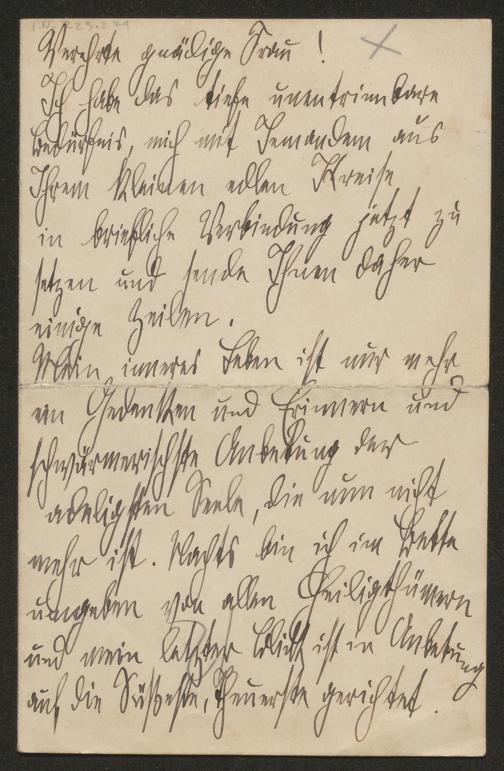 I.N. 223.271
Verehrte gnädige Frau !
Ich habe das tiefe unentrinnbare
Bedürfnis, mich mit Jemandem aus
Ihrem kleinen edlen Kreise
in briefliche Verbindung jetzt zu
setzen und sende Ihnen daher
einige Zeilen .
Mein inneres Leben ist nur mehr
ein Gedenken und Erinnern und
schwärmerischste Anbetung der
adeligsten Seele, die nun nicht
mehr ist . Nachts bin ich im Bette
umgeben von allen Heiligthümern
und mein letzter Blick ist in Anbetung
auf die Süßeste, Theuerste gerichtet .